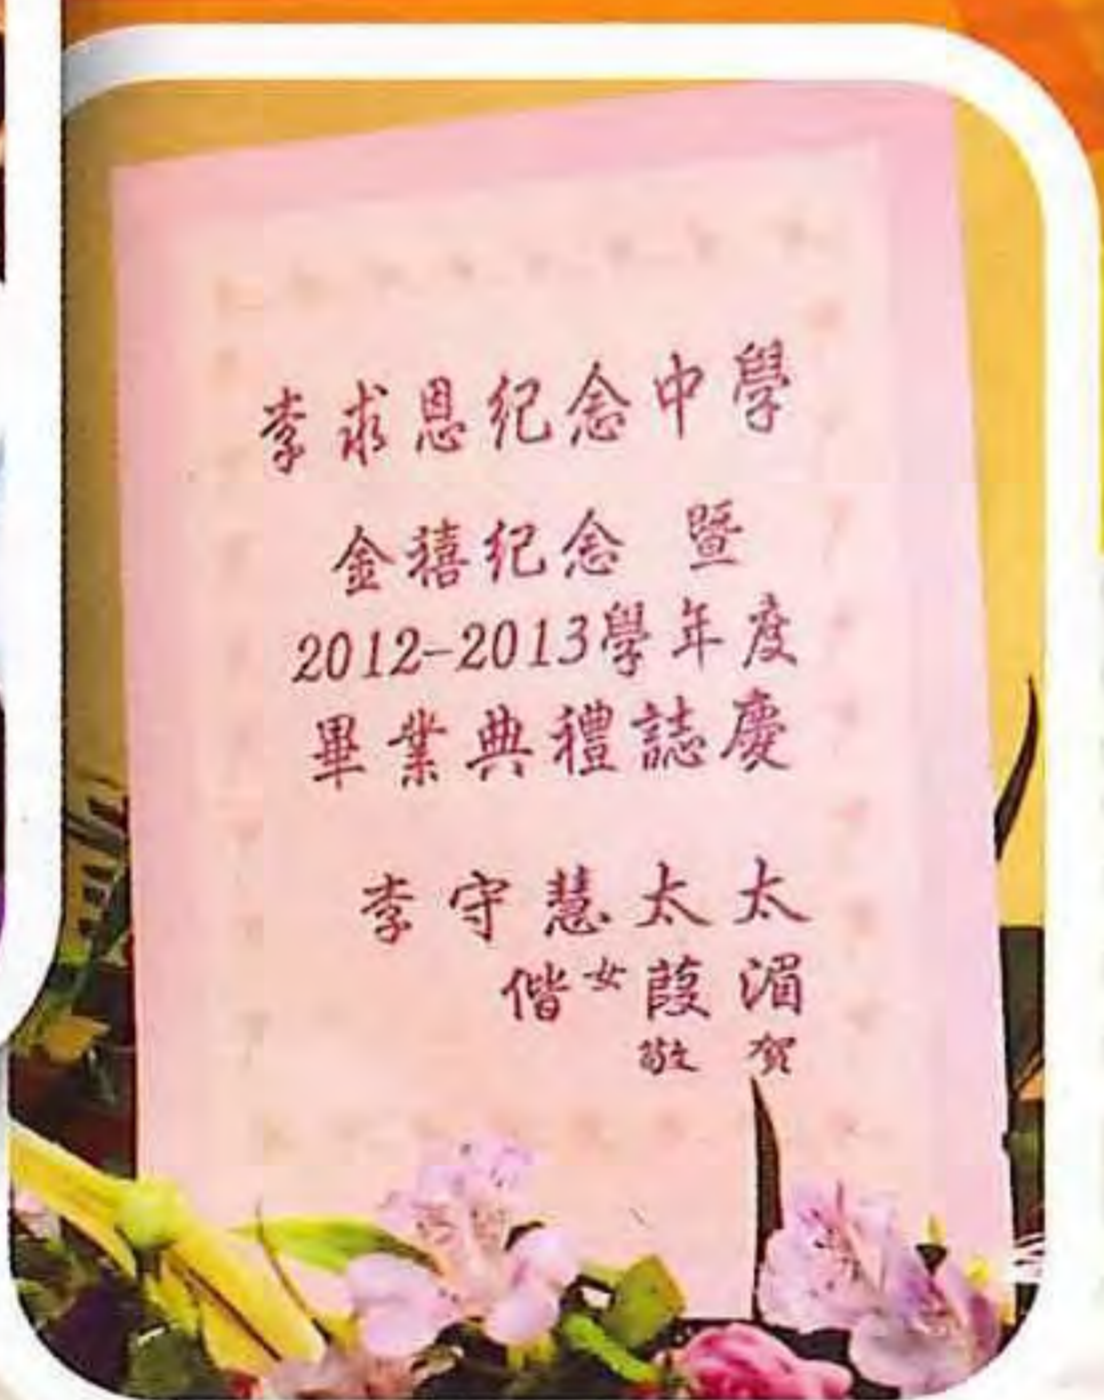 李求恩紀念中學
金禧紀念 暨
2012-2013學年度
畢業典禮誌慶
李守慧太太
偕女葭湄
敬賀